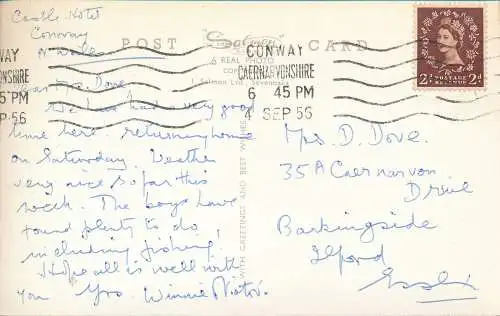 Castle Hotel
Conway
N. Wales
POST CARD
6 REAL PHOTO
J. Salmon Ltd., Sevenoaks
WITH GREETINGS AND BEST WISHES
CONWAY
CAERNARVONSHIRE
6 45 PM
4 SEP 56
WAY
ONSHIRE
5 PM
P 56
POSTAGE
REVENUE
2D 2D
Dear Mrs. Dove.
We have had a very good
time here. returning home
on Saturday. Weather
very nice so far this
week. The boys have
found plenty to do,
including fishing.
Hope all is well with
you Yrs. Winnie
Mrs. D. Dove.
35A Caernarvon
Drive
Barkingside
Ilford
Essex